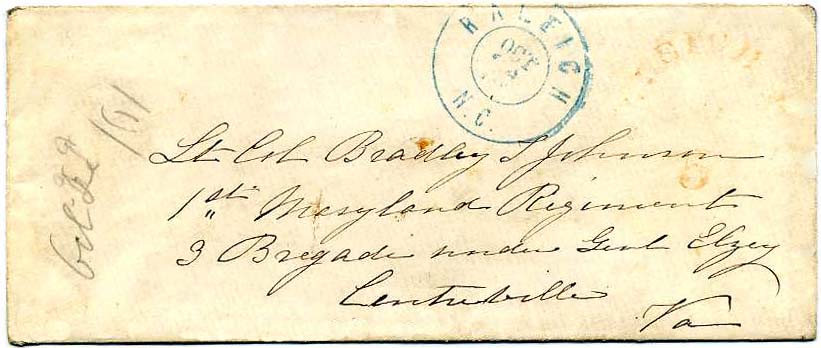 RALEIGH
OCT
N.C.
/61
Lt Col Bradley T Johnson
1st Maryland Regiment
3 Bregade under Genl Elzey
Centreville
Va